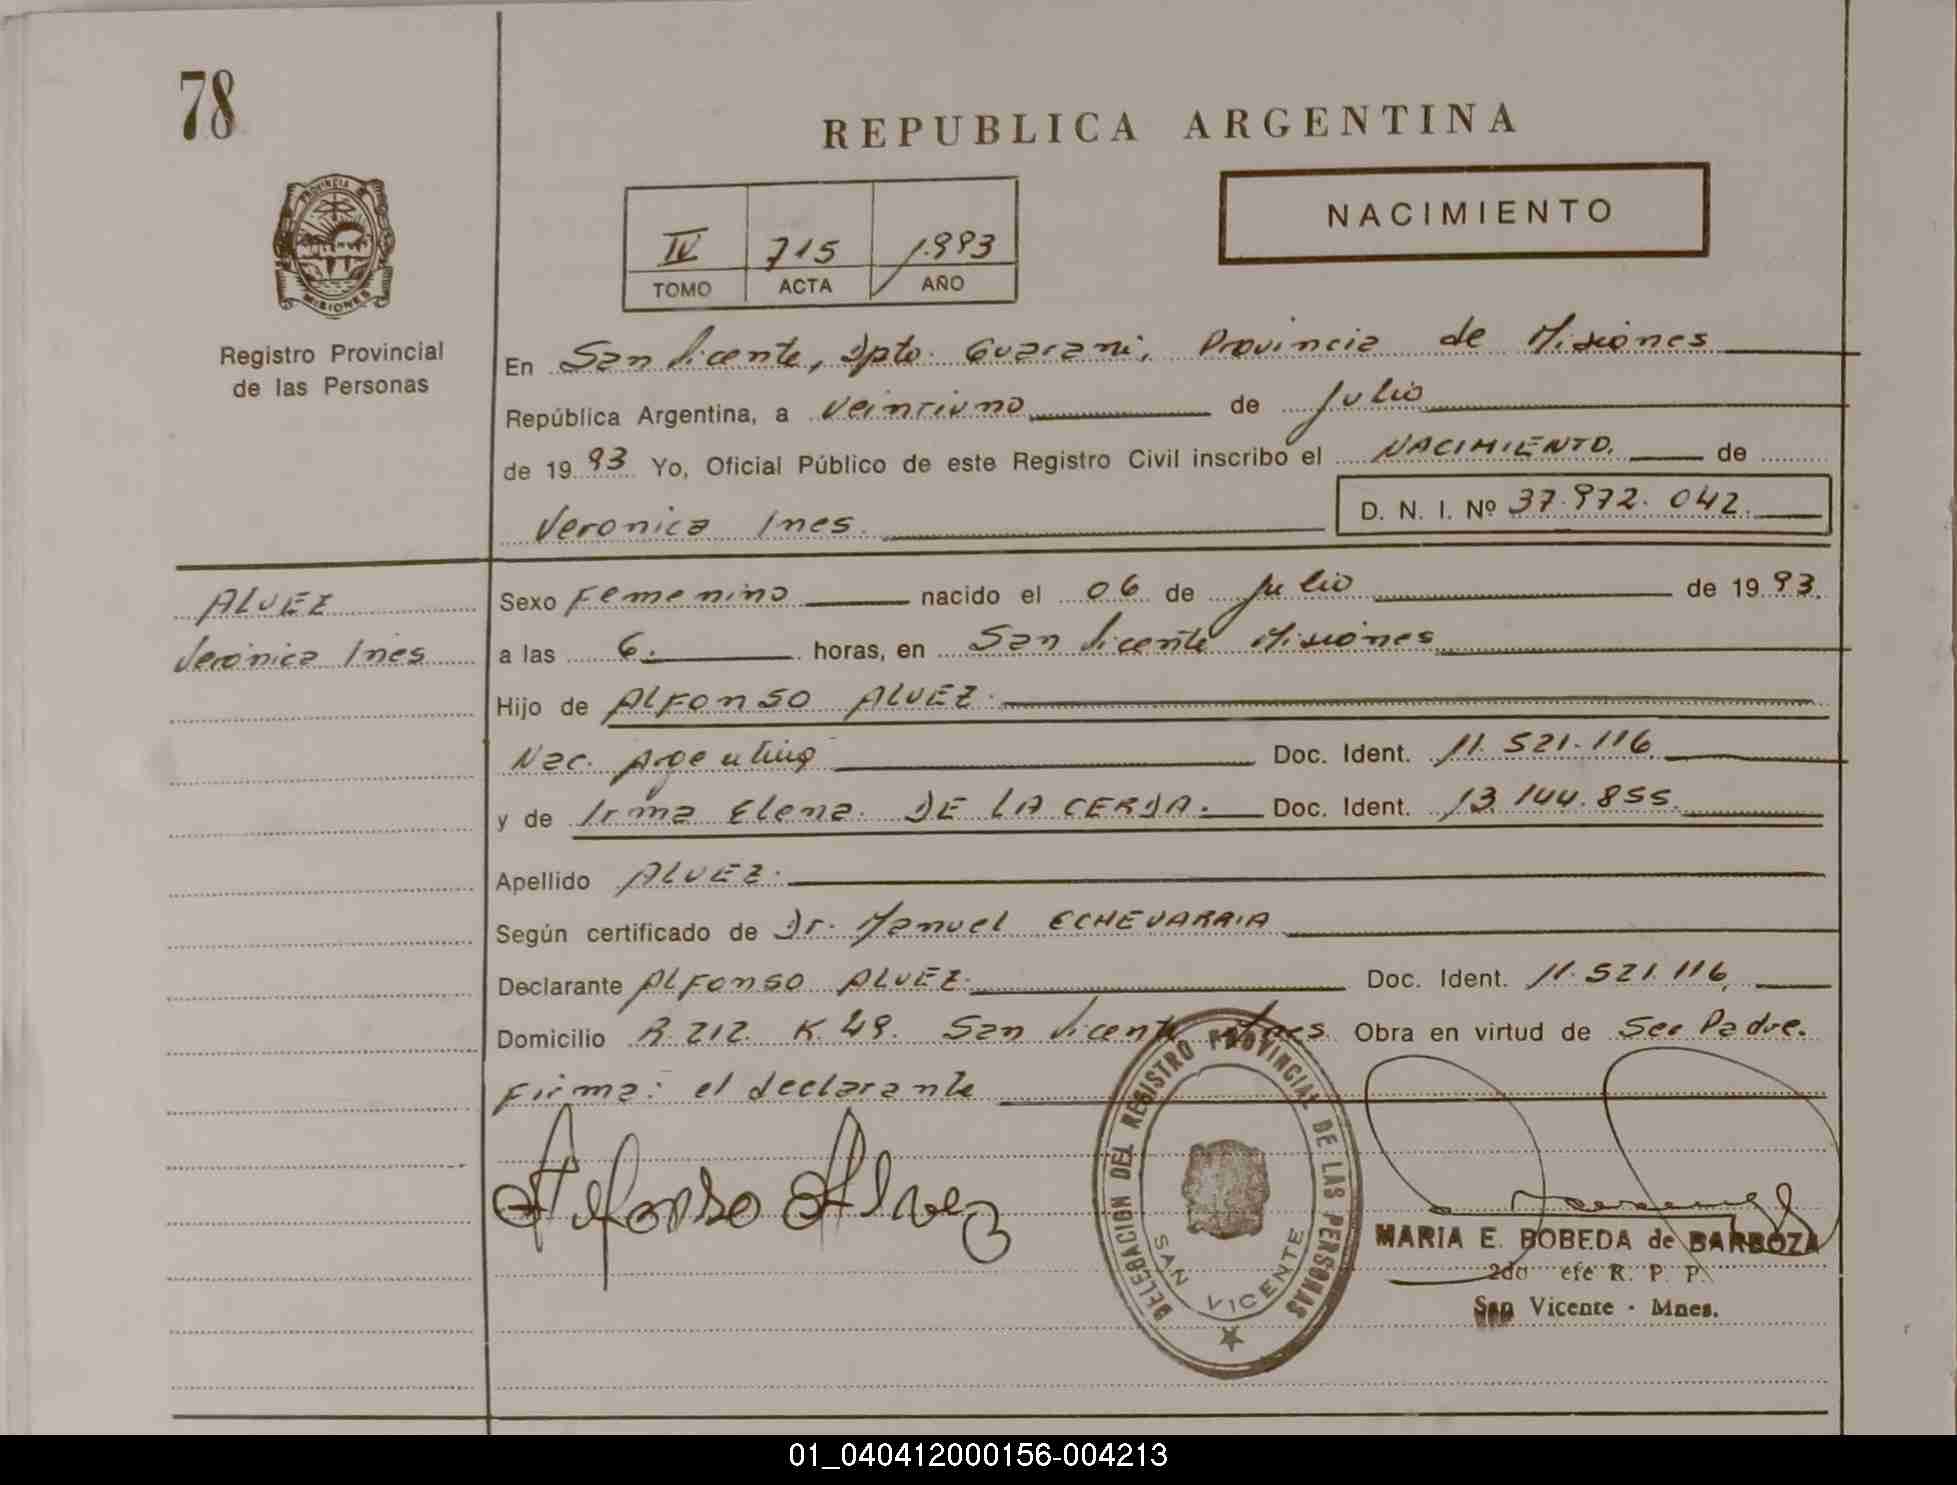 78
REPUBLICA ARGENTINA
NACIMIENTO
IV 715 1.993
TOMO ACTA AÑO
PROVINCIA DE
MISIONES
Registro Provincial
de las Personas
En San Vicente, Dpto. Guaraní, Provincia de Misiones
República Argentina, a veintiuno de Julio
de 19 93 Yo, Oficial Público de este Registro Civil inscribo el NACIMIENTO. de
Veronica Ines. D. N. I. Nº 37.972.042.
ALVEZ
Veronica Ines
Sexo Femenino nacido el 06 de Julio de 19 93.
a las 6. horas, en San Vicente Misiones
Hijo de ALFONSO ALVEZ.
Nac. Argentino Doc. Ident. 11.521.116.
y de Irma Elena DE LA CERDA. Doc. Ident. 13.144.855.
Apellido ALVEZ.
Según certificado de Dr. Manuel ECHEVARRIA
Declarante ALFONSO ALVEZ. Doc. Ident. 11.521.116.
Domicilio R. 212. K. 49. San Vicente Mnes. Obra en virtud de See Padre.
Firma: el declarante
Alfonso Alvez
DELEGACION DEL REGISTRO PROVINCIAL DE LAS PERSONAS
SAN VICENTE
MARIA E. BOBEDA de BARBOZA
2do efe R. P. P.
San Vicente - Mnes.
01_040412000156-004213